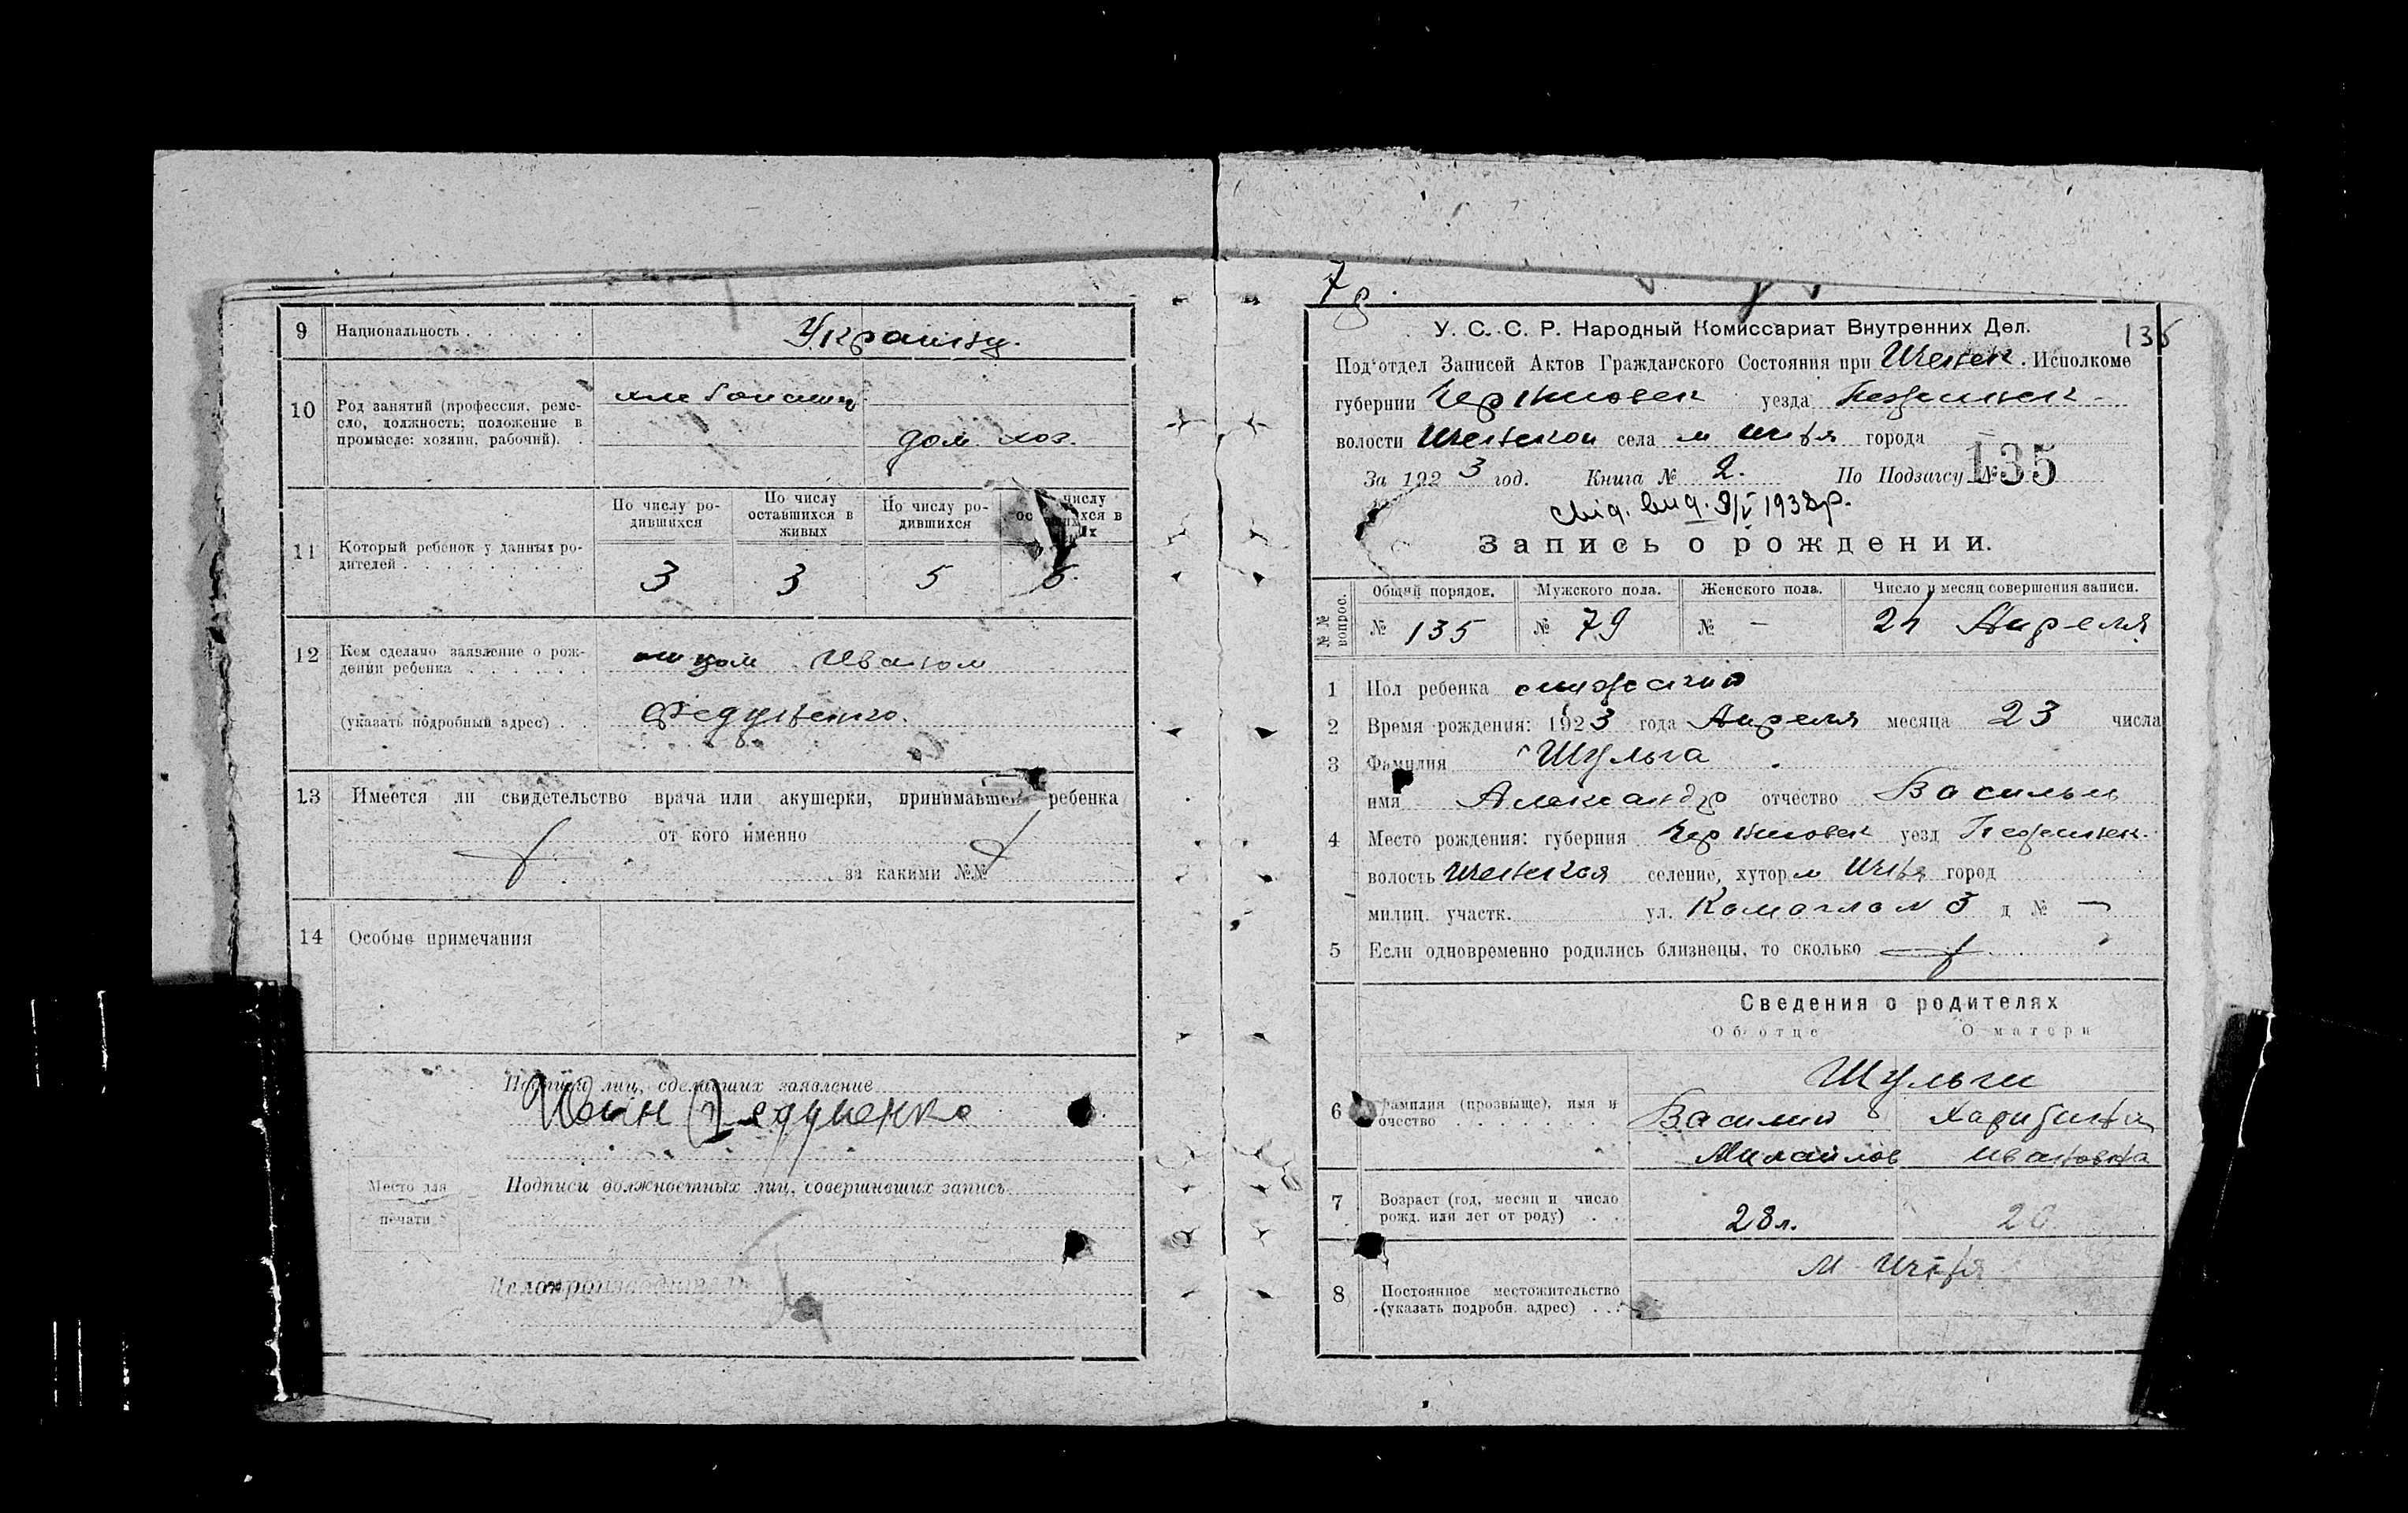 9 Национальность Украинц.
10 Род занятий (профессия, ремесло, должность; положение в промысле: хозяин, рабочий). хлебопашец
дом. хоз.
По числу родившихся По числу оставшихся в живых По числу родившихся числу
11 Который ребенок у данных родителей 3 3 5
12 Кем сделано заявление о рождении ребенка отцом Иваном
(указать подробный адрес) Федученко.
13 Имеется ли свидетельство врача или акушерки, принимавшей ребенка
от кого именно
за какими №№
14 Особые примечания
Подписи лиц, сделавших заявление
Федученко
Место для печати
Подписи должностных лиц, совершивших запись
Делопроизводитель
У. С. С. Р. Народный Комиссариат Внутренних Дел. 135
Под'отдел Записей Актов Гражданского Состояния при Исполкоме
губернии Черниговск уезда Нежинск
волости села м Ичня города
За 1923 год. Книга № 2. По Подзагсу № 135
Запись о рождении.
№№ вопрос. Общий порядок. Мужского пола. Женского пола. Число и месяц совершения записи.
№ 135 № 79 № – 24 Апреля
1 Пол ребенка
2 Время рождения: 1923 года Апреля месяца 23 числа
3 Фамилия Шульга
имя Александр отчество Васильев
4 Место рождения: губерния Черниговск уезд Нежинск.
волость селение, хутор м Ичня город
милиц. участк. ул. 3 д № –
5 Если одновременно родились близнецы, то сколько
Сведения о родителях
Об отце О матери
Шульги
6 Фамилия (прозвище), имя и отчество Василий Харитина
Михайлов Ивановна
7 Возраст (год, месяц и число рожд. или лет от роду) 28л.
м Ичня
8 Постоянное местожительство (указать подробн. адрес)